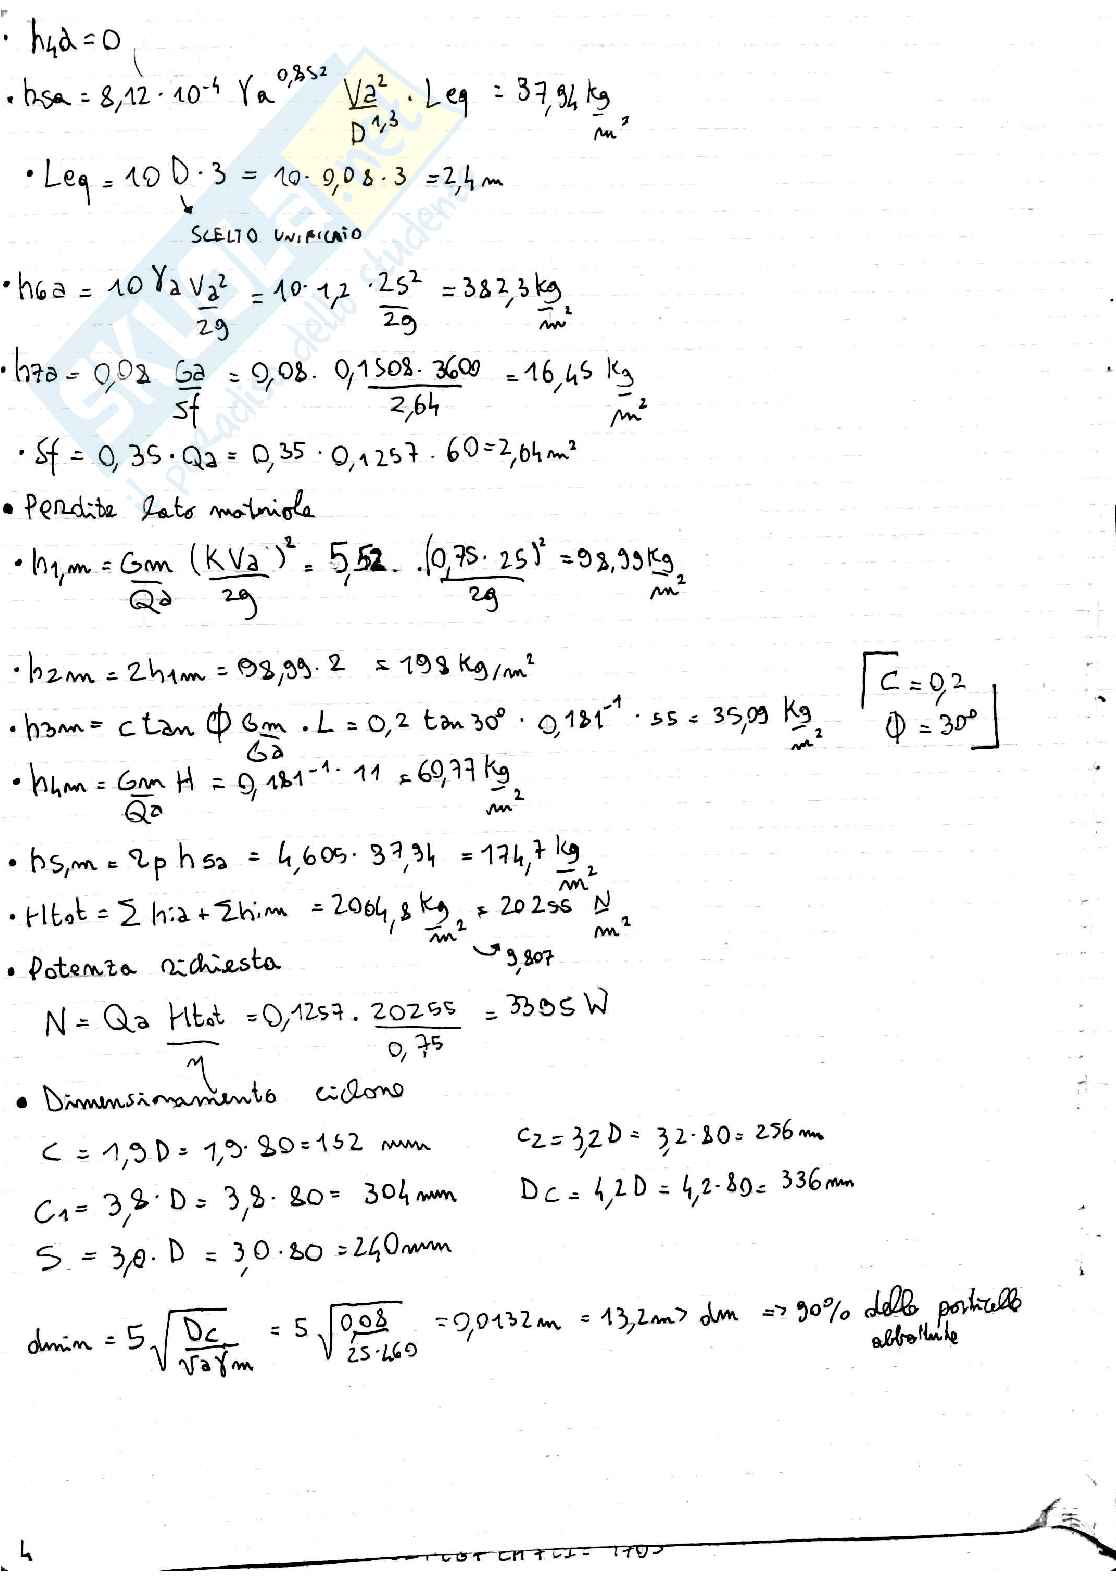 · h4a = 0
· h5a = 8,12 · 10^-4 γa^0,852 Va²/D^1,3 · Leq = 37,94 kg/m²
· Leq = 10 D · 3 = 10 · 0,08 · 3 = 2,4 m
SCELTO UNIFICATO
· h6a = 10 γa Va²/2g = 10 · 1,2 · 25²/2g = 382,3 kg/m²
· h7a = 0,08 Ga/Sf = 0,08 · 0,1508 · 3600/2,64 = 16,45 kg/m²
· Sf = 0,35 · Qa = 0,35 · 0,1257 · 60 = 2,64 m²
• Perdite lato materiale
· h1,m = Gm/Qa (KVa)²/2g = 5,52 · (0,75 · 25)²/2g = 98,99 kg/m²
· h2m = 2h1m = 98,99 · 2 = 198 kg/m²
C = 0,2
· h3m = c tan ϕ Gm/Ga · L = 0,2 tan 30° · 0,181^-1 · 55 = 35,09 kg/m²
ϕ = 30°
· h4m = Gm/Qa H = 0,181^-1 · 11 = 60,77 kg/m²
· h5,m = 2p h5a = 4,605 · 37,94 = 174,7 kg/m²
· Htot = Σ hia + Σhim = 2064,8 kg/m² = 20255 N/m²
9,807
• Potenza richiesta
N = Qa Htot/η = 0,1257 · 20255/0,75 = 3395 W
• Dimensionamento ciclone
C = 1,9 D = 1,9 · 80 = 152 mm C2 = 3,2 D = 3,2 · 80 = 256 mm
C1 = 3,8 · D = 3,8 · 80 = 304 mm Dc = 4,2 D = 4,2 · 80 = 336 mm
S = 3,0 · D = 3,0 · 80 = 240 mm
dmin = 5 √(Dc/Vaγm) = 5 √(0,08/25·460) = 0,0132 m = 13,2 m > dm => 90% delle particelle
abbattute
4
SKUOLA.net
il paradiso dello studente